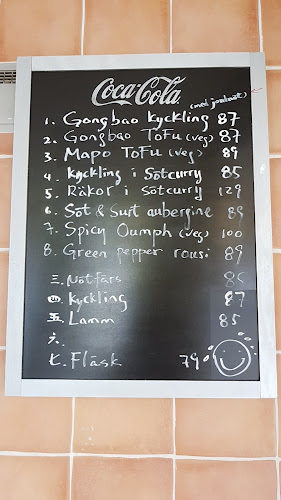 Coca-Cola
(med jordnöt)
1. Gongbao kyckling 87
2. Gongbao ToFu (veg) 87
3. Mapo ToFu (veg) 89
4. kyckling i Sötcurry 85
5. Räkor i sötcurry 129
6. Söt & Surt aubergine 89
7. Spicy Oumph (veg) 100
8. Green pepper rousi 89
三. Nötfärs 85
四. Kyckling 87
五. Lamm 85
六.
七. Fläsk 79